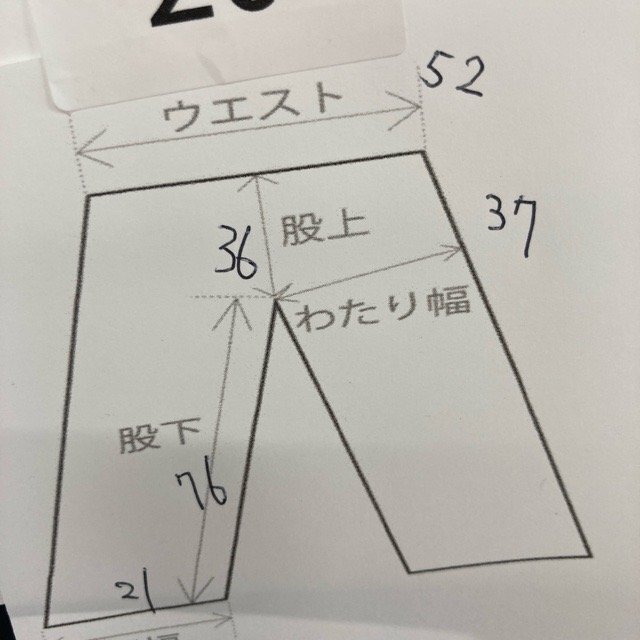 ウエスト
52
股上
36
37
わたり幅
股下
76
21